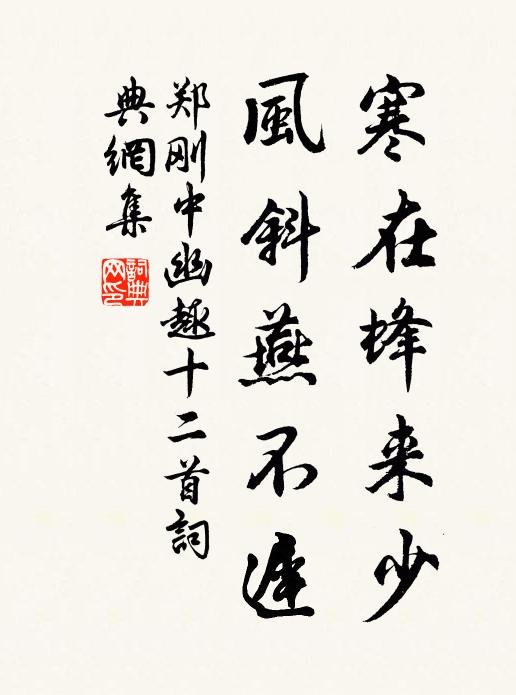 寒在蜂来少
風斜燕不遅
郑刚中幽趣十二首詞
典網集
詞典网印